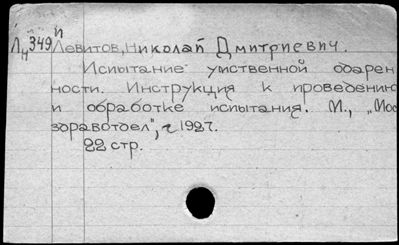 И
Лн349 Левитов, Николай Дмитриевич.
Испытание умственной одарен
ности. Инструкция к проведению
и обработке испытания. М., „Мос
здравотдел", 1927.
22 стр.